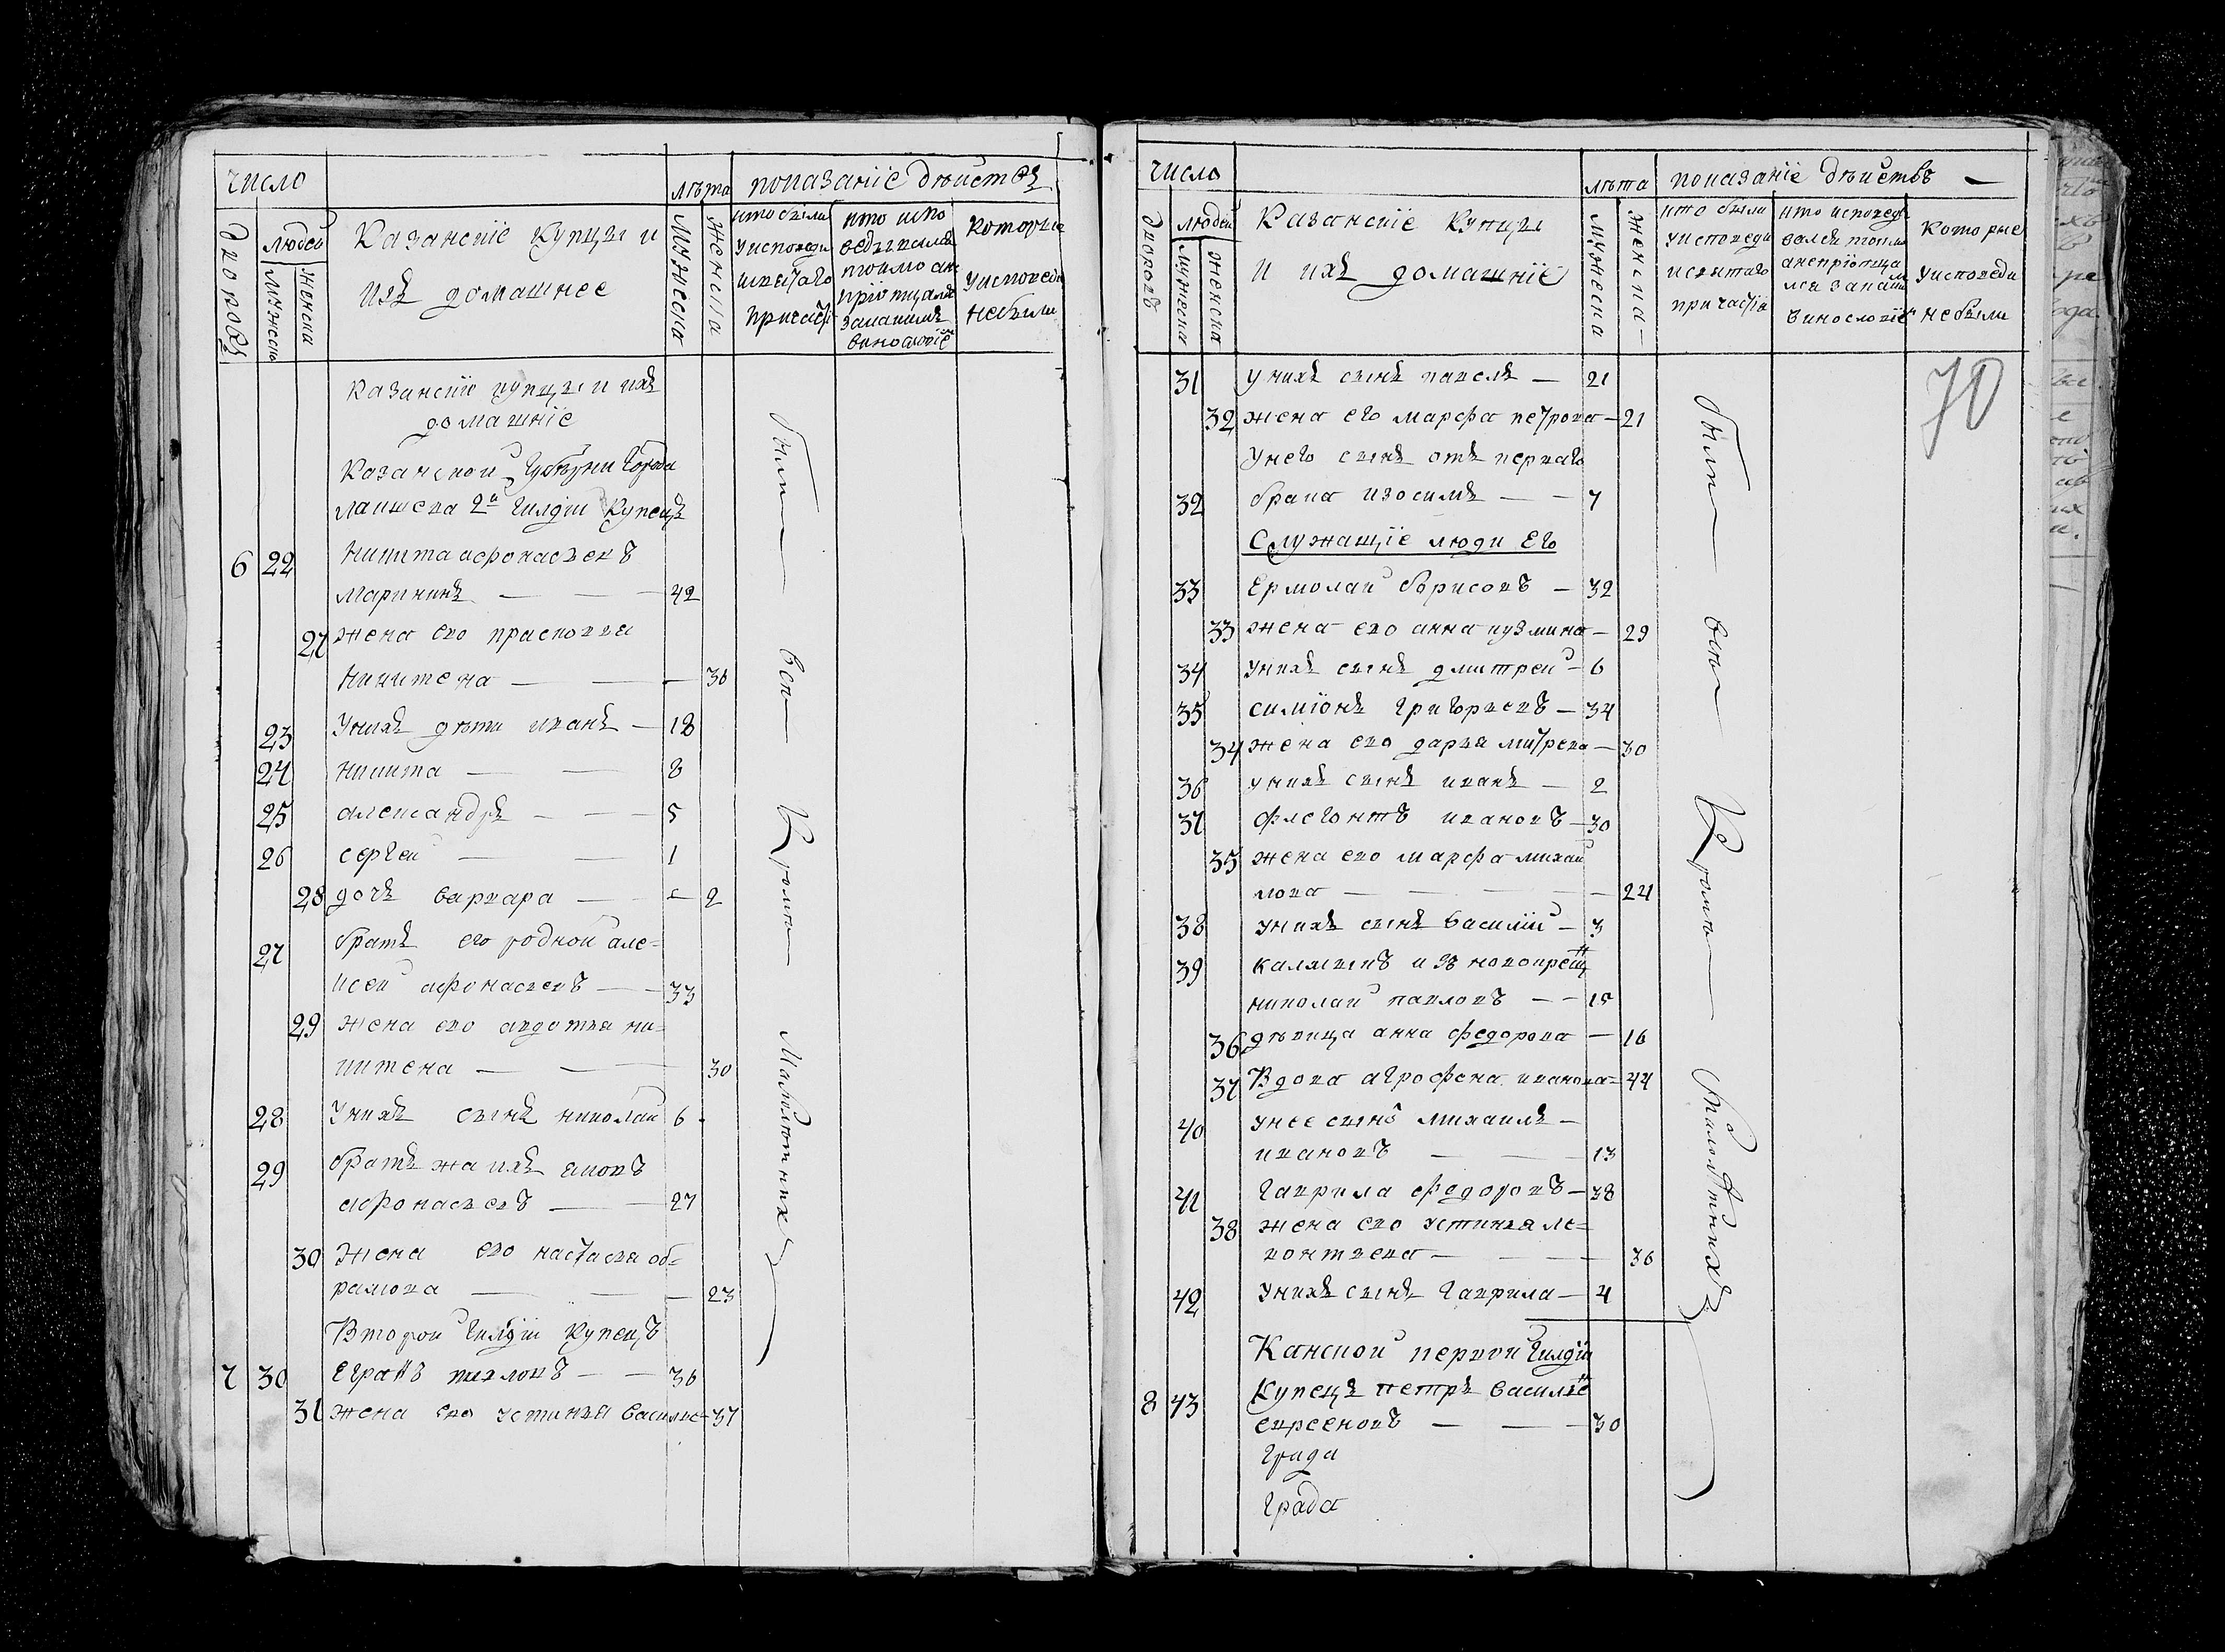 число
лѣта показанiе дѣйствъ
дворовъ
людей
мужеска
женска
Казанскiе купцы и
ихъ домашнее
мужеска
женска
кто были
у исповеди
и святаго
причастi
кто испо
ведывался
токмо а не
прiобщался
за какимъ
винословiе
которые
у исповеди
небыли
Казанскiе купцы и ихъ
домашнiе
Казанской Губернiи Города
лаишева 2й Гилдiи Купецъ
6 22 Никита афонасьевъ
Маринин — — 42
27 жена ево прасковья
Никитена — — 36
23 У нихъ дѣти иванъ — 18
24 никита — — 8
25 александръ — — 5
26 сергей — — 1
28 дочь варвара — — 2
27 братъ его родной але=
ксей афонасьевъ — — 33
29 жена ево авдотья ни=
китена — — 30
28 У нихъ сынъ николай 6
29 братъ жа ихъ яковъ
афонасьевъ — — 27
30 Жена ево настасья об=
рамова — — 23
Второй Гилдiи купецъ
7 30 Еграѳъ павловъ — — 36
31 жена ево устинья василье= 37
были — все — Кроме — Малолютнихъ
число
лѣта показанiе дѣйствъ —
дворовъ
людей
мужеска
женска
Казанскiе купцы
и ихъ домашнiе
мужеска
женска
кто были
у исповеди
и святаго
причастiя
кто исповед
вался токмо
а не прiобща
лся за каким
винословiе
которые
у исповеди
небыли
70
31 у нихъ сынъ павелъ — 21
32 жена его марфа петрова — 21
У него сынъ отъ перваго
32 брака изосимъ — — 7
Служащiе люди Его
33 Ермолай борисовъ — 32
33 жена ево анна кузмина — 29
34 у нихъ сынъ дмитрей — 6
35 симiонъ григорьевъ — 34
34 жена ево дарья митрева — 30
36 у нихъ сынъ иванъ — 2
37 флегонтъ ивановъ — 30
35 жена ево марфа михаи
лова — — 24
38 у нихъ сынъ василiй — 3
39 калмыкъ изъ новокрещ
николай павловъ — — 15
36 дѣвица анна федорова — 16
37 Вдова агрофена иванова= 44
40 у нее сынъ михаилъ —
ивановъ — — 13
41 гаврила федоровъ — 38
38 жена ево устинья ле=
вонтьева — — 36
42 у нихъ сынъ гаврила — 4
Канской первой гилдiи
8 43 Купецъ петръ василье
евсеновъ — — 30
града
града
были — все — Кроме — малолѣтнихъ